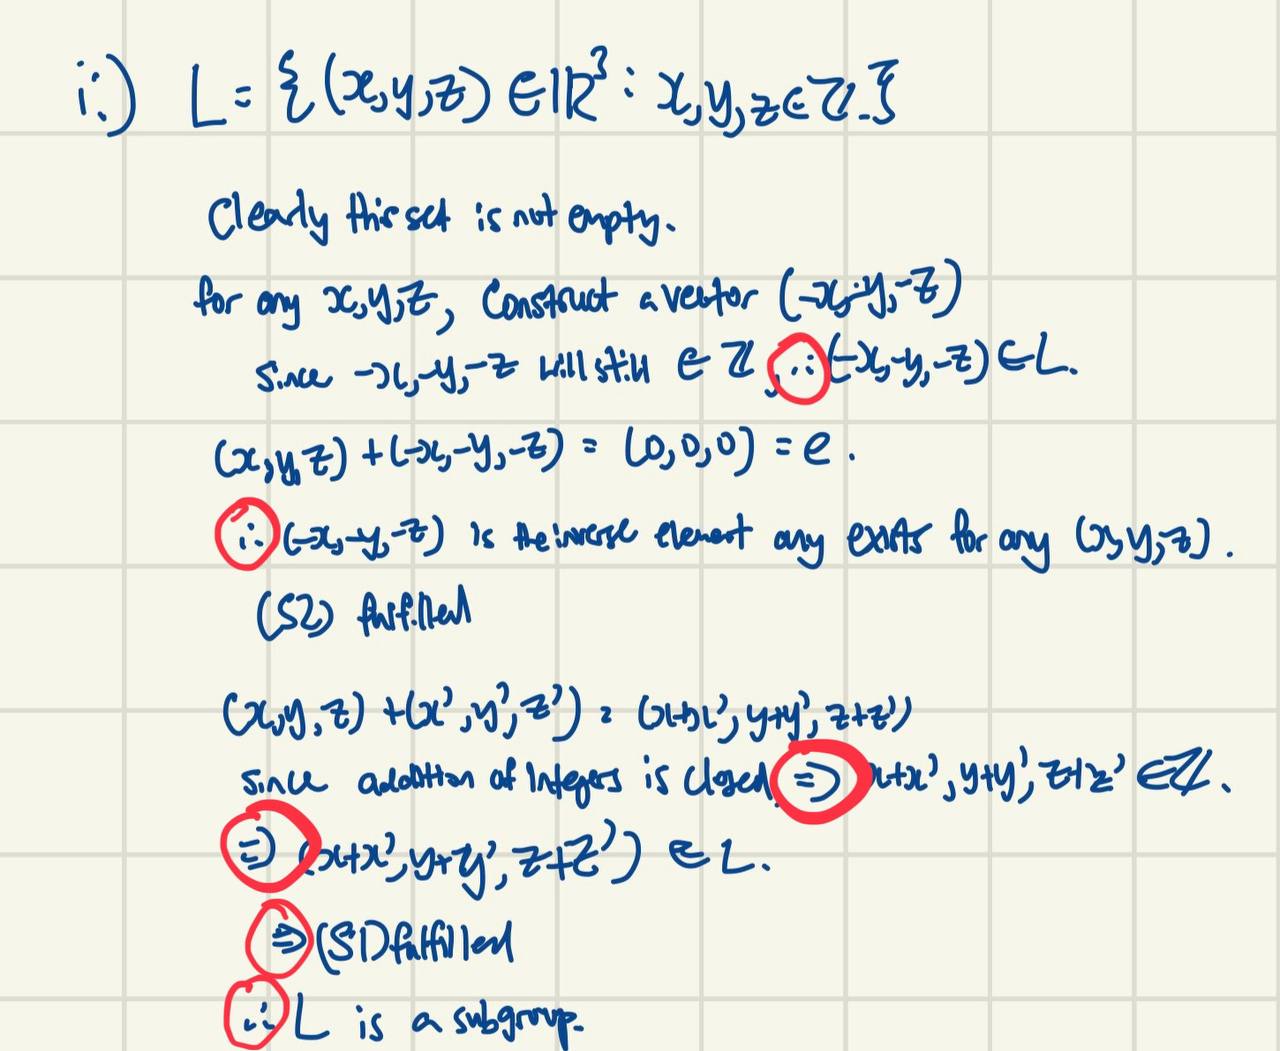 i.) L = {(x,y,z) ∈ ℝ³ : x,y,z ∈ ℤ.}
Clearly this set is not empty.
for any x,y,z, construct a vector (-x,-y,-z)
since -x,-y,-z will still ∈ ℤ, ∴ (-x,-y,-z) ∈ L.
(x,y,z) + (-x,-y,-z) = (0,0,0) = e.
∴ (-x,-y,-z) is the inverse element any exists for any (x,y,z).
(S2) fulfilled
(x,y,z) + (x',y',z') = (x+x', y+y', z+z')
since addition of integers is closed, ⇒ x+x', y+y', z+z' ∈ ℤ.
⇒ (x+x', y+y', z+z') ∈ L.
⇒ (S1) fulfilled
∴ L is a subgroup.